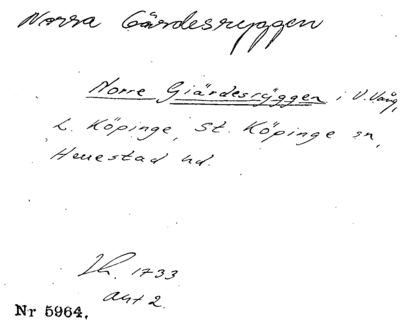 Norra Gärdesryggen
Norre Giärdesrÿggen i V. Vång,
L. Köpinge, St. Köpinge sn,
Herrestad hd.
Lh. 1733
akt 2.
Nr 5964.